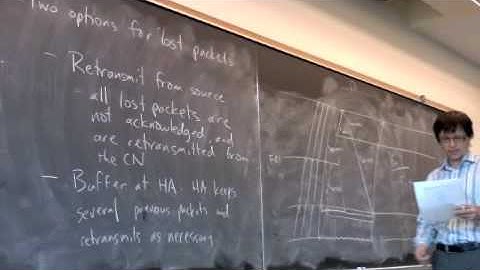 Two options for lost packets
- Retransmit from source
all lost packets are
not acknowledged and
are retransmitted from
the CN
- Buffer at HA. HA keeps
several previous packets and
retransmits as necessary